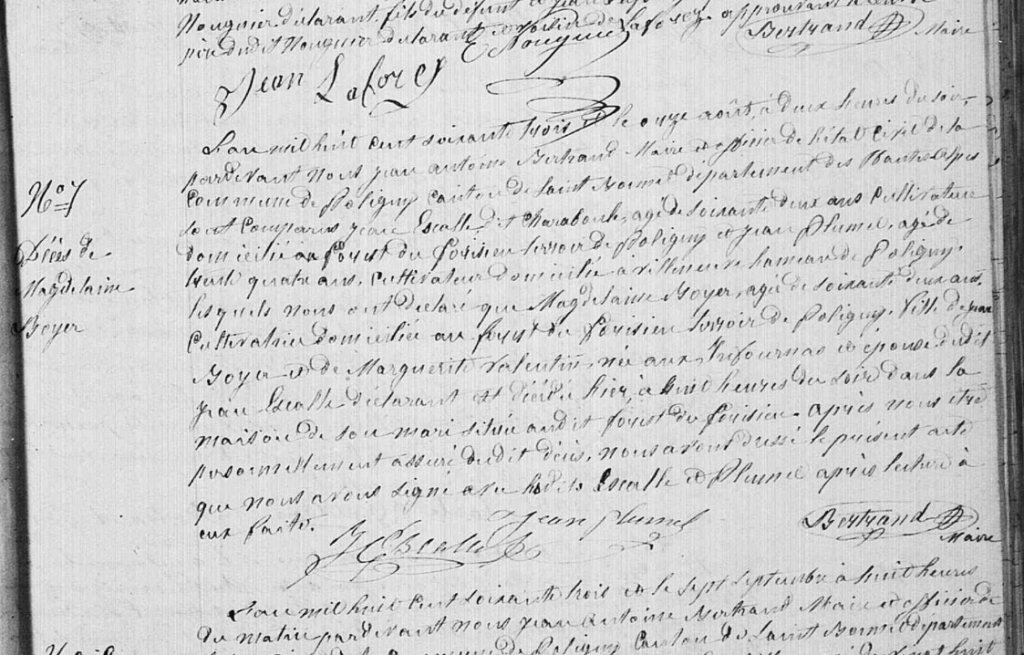 Nouguier déclarant, fils du défunt et Jean
dudit Nouguier déclarant approuvant
Nouguier
Bertrand
Maire
Jean Laforey
L'an mil huit cent soixante trois et le onze août, à deux heures du soir,
pardevant nous Jean Antoine Bertrand Maire et officier de l'état civil de la
N° 7
commune de Poligny canton de Saint Bonnet département des Hautes Alpes
sont comparus Jean Escalle dit Charaboule, agé de soixante deux ans cultivateur
Décès de
domicilié au Forest du Foisieu terroir de Poligny et Jean Plumel, agé de
Magdelaine
trente quatre ans, cultivateur domicilié à villeneuve hameau de Poligny.
lesquels nous ont déclaré que Magdelaine Boyer, agée de soixante deux ans,
Boyer
cultivatrice domiciliée au Forest du Foisieu terroir de Poligny, fille de Jean
Boyer et de Marguerite Valentin, née aux Infournas et épouse dudit
Jean Escalle déclarant est décédée hier, à huit heures du soir dans la
maison de son mari située audit Forest du Foisieu. après nous être
personnellement assuré dudit décès, nous avons dressé le présent acte
que nous avons signé avec lesdits Escalle et Plumel après lecture à
eux faite.
J Escalle
Jean Plumel
Bertrand
Maire
L'an mil huit cent soixante trois et le sept septembre à huit heures
du matin pardevant nous Jean Antoine Bertrand Maire et officier de
commune de Poligny Canton de Saint Bonnet département